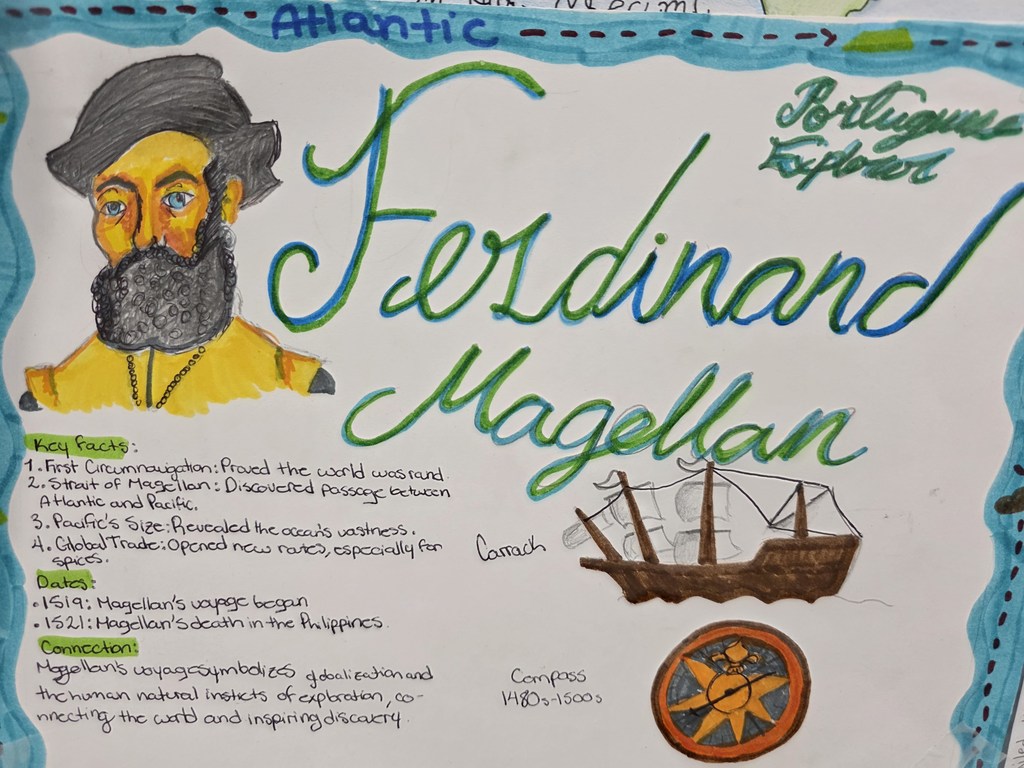 Atlantic
Portuguese
Explorer
Ferdinand
Magellan
Key facts:
1. First Circumnavigation: Proved the world was rand.
2. Strait of Magellan: Discovered passage between
Atlantic and Pacific.
3. Pacific's Size: Revealed the ocean's vastness.
4. Global Trade: Opened new routes, especially for
spices.
Dates:
• 1519: Magellan's voyage began
• 1521: Magellan's death in the Philippines.
Connection:
Magellan's voyage symbolizes globalization and
the human natural insticts of exploration, co-
nnecting the world and inspiring discovery.
Carrack
Compass
1480s-1500s